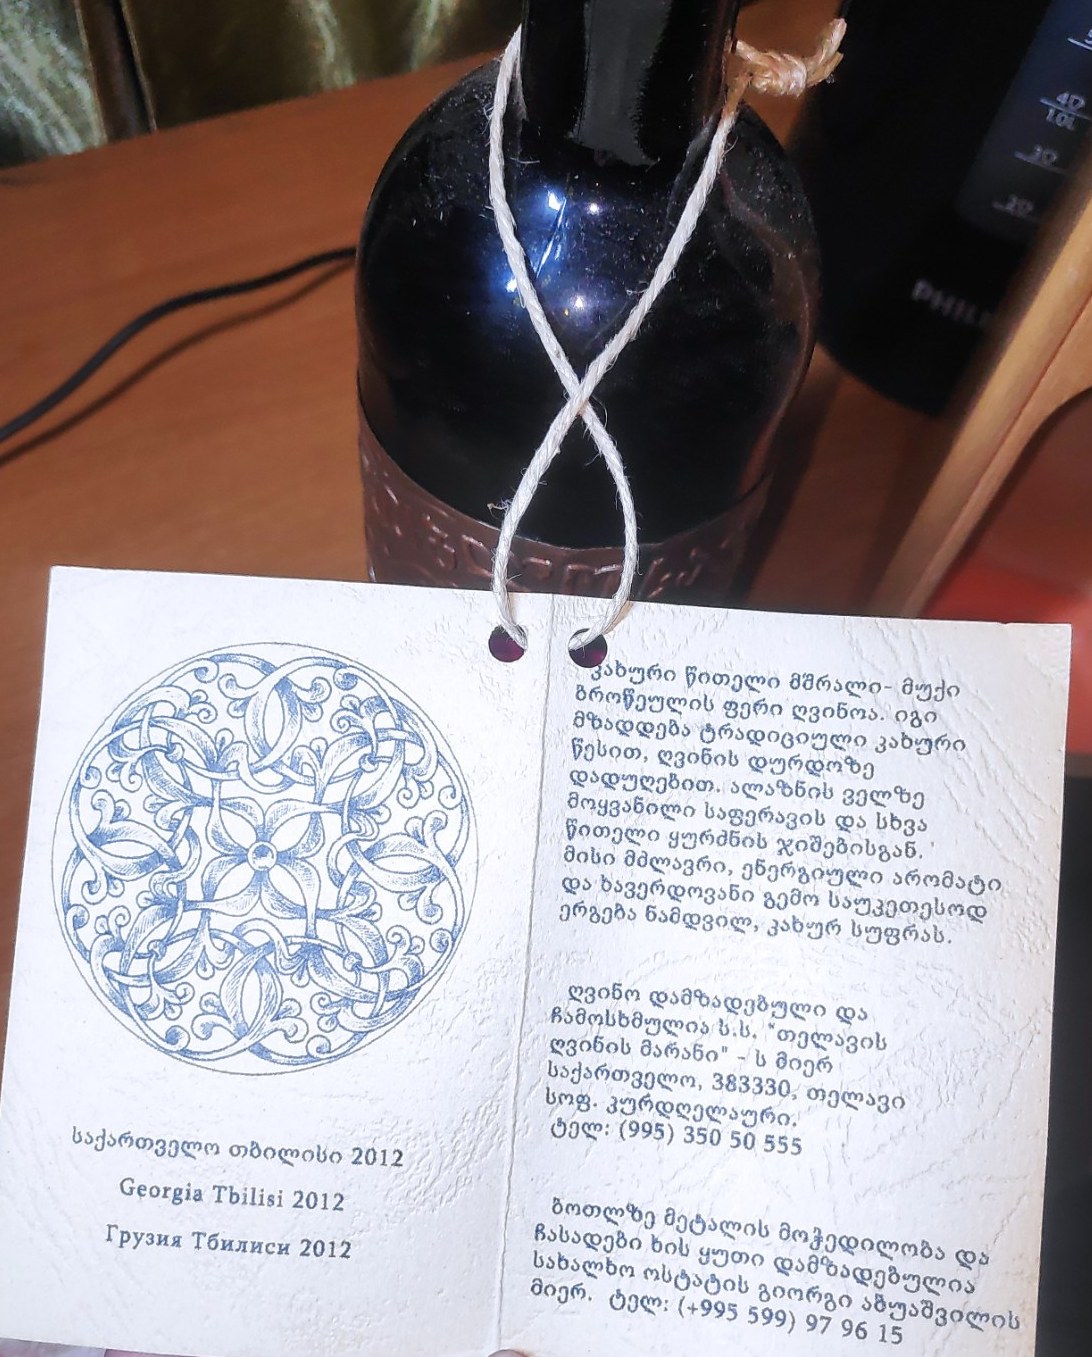 40
1.0L
30
20
საქართველო თბილისი 2012
Georgia Tbilisi 2012
Грузия Тбилиси 2012
კახური წითელი მშრალი- მუქი
ბროწეულის ფერი ღვინოა. იგი
მზადდება ტრადიციული კახური
წესით, ღვინის დურდოზე
დადუღებით. ალაზნის ველზე
მოყვანილი საფერავის და სხვა
წითელი ყურძნის ჯიშებისგან.
მისი მძლავრი, ენერგიული არომატი
და ხავერდოვანი გემო საუკეთესოდ
ერგება ნამდვილ, კახურ სუფრას.
ღვინო დამზადებული და
ჩამოსხმულია ს.ს. "თელავის
ღვინის მარანი" - ს მიერ
საქართველო, 383330, თელავი
სოფ. კურდღელაური.
ტელ: (995) 350 50 555
ბოთლზე მეტალის მოჭედილობა და
ჩასადები ხის ყუთი დამზადებულია
სახალხო ოსტატის გიორგი აბუაშვილის
მიერ. ტელ: (+995 599) 97 96 15